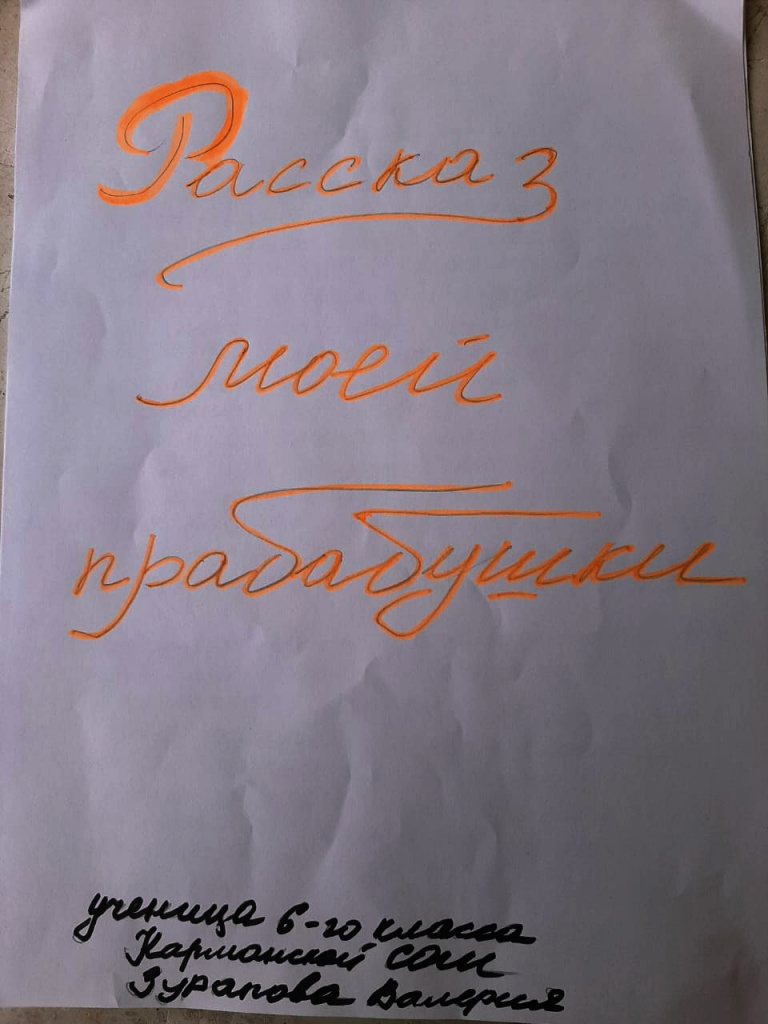 Рассказ
моей
прабабушки
ученица 6-го класса
Карманской СОШ
Зурапова Валерия